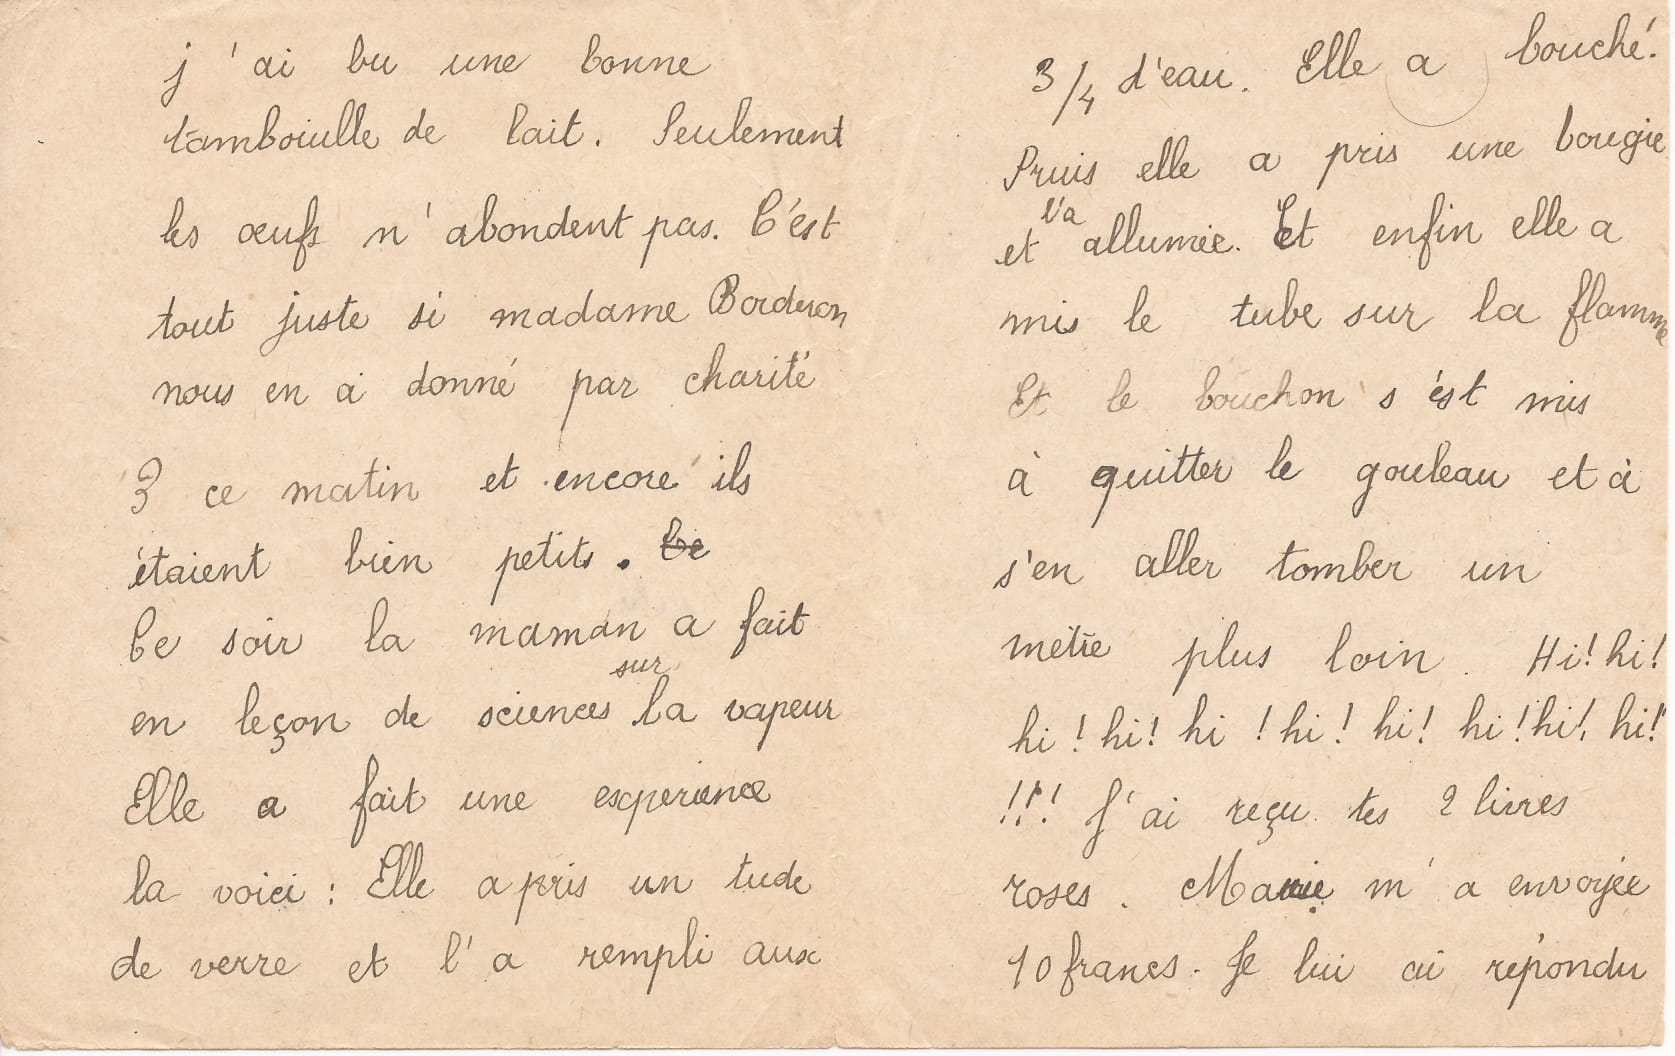 j'ai bu une bonne
tamboiulle de lait. Seulement
les œufs n'abondent pas. C'est
tout juste si madame Borderon
nous en a donné par charité
3 ce matin et encore ils
étaient bien petits. Ce
Ce soir la maman a fait
sur
en leçon de sciences la vapeur
Elle a fait une experience
la voici : Elle a pris un tude
de verre et l'a rempli aux
3/4 d'eau. Elle a bouché.
Pruis elle a pris une bougie
l'a
et allumée. Et enfin elle a
mis le tube sur la flamme
Et le bouchon s'ést mis
à quitter le gouleau et à
s'en aller tomber un
mètre plus loin. Hi! hi!
hi! hi! hi! hi! hi! hi! hi! hi!
!!! J'ai reçu tes 2 livres
roses. m'a envoyée
10 francs. Je lui ai répondu